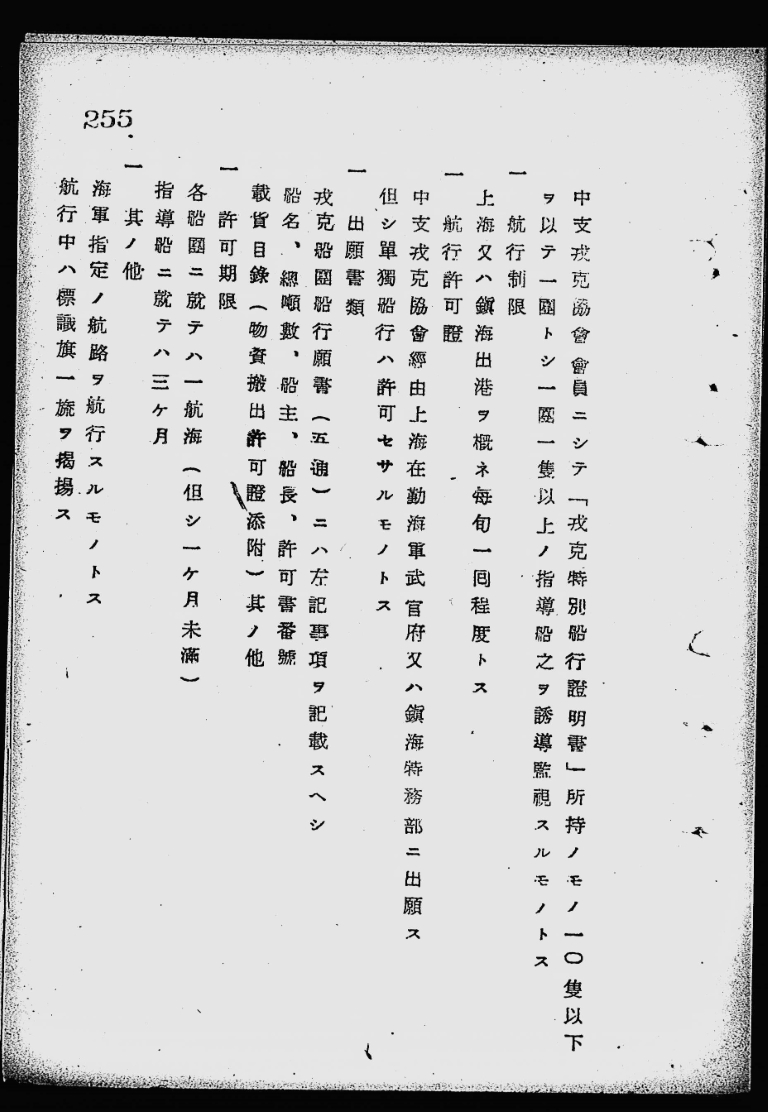 255
中支戎克協會會員ニシテ「戎克特別船行證明書」所持ノモノ一〇隻以下
ヲ以テ一團トシ一團一隻以上ノ指導船之ヲ誘導監視スルモノトス
一 航行制限
上海又ハ鎭海出港ヲ概ネ每旬一囘程度トス
一 航行許可證
中支戎克協會經由上海在勤海軍武官府又ハ鎭海特務部ニ出願ス
但シ單獨船行ハ許可セサルモノトス
一 出願書類
戎克船團船行願書(五通)ニハ左記事項ヲ記載スヘシ
船名、總噸數、船主、船長、許可書番號
載貨目錄(物資搬出許可證添附)其ノ他
一 許可期限
各船團ニ就テハ一航海(但シ一ケ月未滿)
指導船ニ就テハ三ケ月
一 其ノ他
海軍指定ノ航路ヲ航行スルモノトス
航行中ハ標識旗一旒ヲ揭揚ス